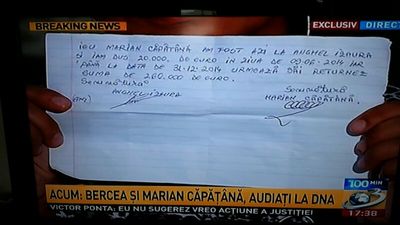 BREAKING NEWS
EXCLUSIV DIRECT
IEU MARIAN CĂPĂTÂNĂ AM FOST AZI LA ANGHEL IZAURA
SI IAM DUS 20.000. DE EURO IN ZIUA DE 09.06.2014 IAR
PÂNĂ LA DATA DE 31.12.2014 URMEAZĂ SĂI RETURNEZ
SUMA DE 280.000 DE EURO.
SEMNĂTURĂ SEMNĂTURĂ
ANGHEL IZAURA MARIAN CĂPĂTÂNĂ.
100 MIN
ACUM: BERCEA SI MARIAN CĂPĂȚÂNĂ, AUDIAȚI LA DNA
VICTOR PONTA: EU NU SUGEREZ VREO ACȚIUNE A JUSTIȚIEI
17:38